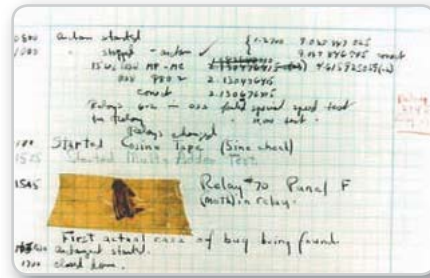 0800 antan started
1000 " stopped - antan ✓ { 1.2700 9.037 847 025
9.037 846 795 correct
13" MP-MC 2.130476415 4.615925059(-2)
PRO 2 2.130476415
correct 2.130676415
Relays 6-2 in 033 failed special speed test
in relay " test.
Relays changed
1100 Started Cosine Tape (Sine check)
1525 Started Multi Adder Test.
1545 Relay #70 Panel F
(moth) in relay.
First actual case of bug being found.
antangent started.
1700 closed down.